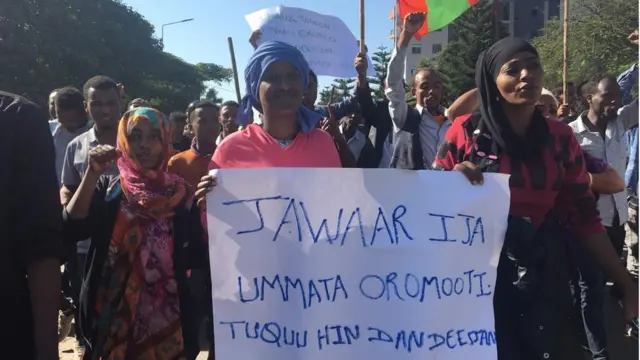 JAWAAR IJA
UMMATA OROMOOTI.
TUQUU HIN DANDEEDAN